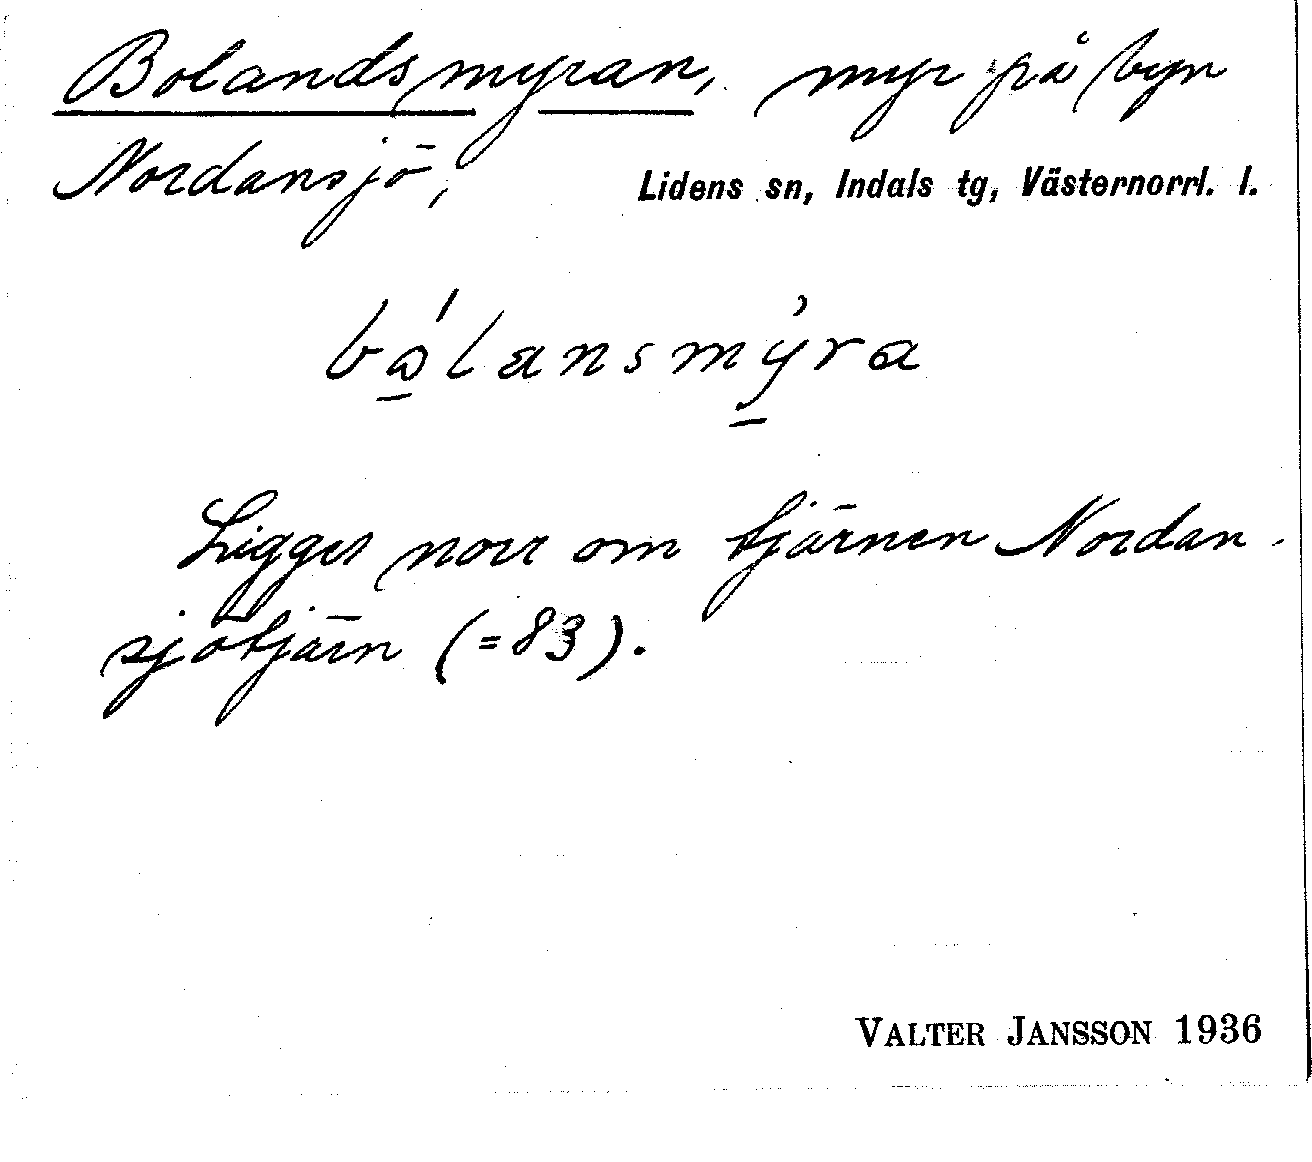 Bolandsmyran, myr på byn
Nordansjö, Lidens sn, Indals tg, Västernorrl. l.
bålansmyra
Ligger norr om tjärnen Nordan-
sjötjärn (=83).
VALTER JANSSON 1936